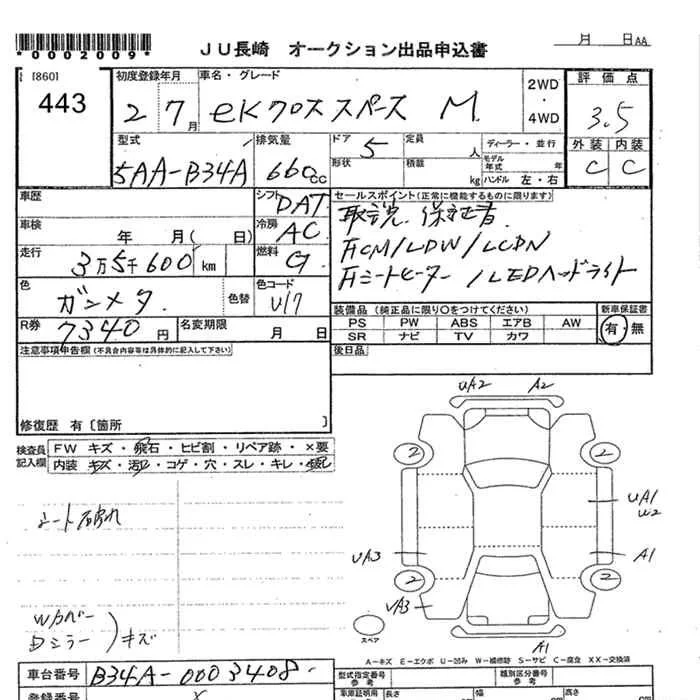 *0002009*
JU長崎 オークション出品申込書
月 日 AA
[860]
443
初度登録年月
2 7月
車名・グレード
eKクロススペース M
2WD
・
4WD
評価点
3.5
型式
5AA-B34A
排気量
660cc
ドア
5
定員
人
ディーラー・並行
形状
積載
kg
モデル年式 年
ハンドル 左・右
外装
C
内装
C
車歴
シフト
DAT
車検
年 月( 日)
冷房
AC
走行
3万5千600km
燃料
G
色
ガンメタ
色替
色コード
U17
R券
7340円
名変期限
月 日
セールスポイント(正常に機能するものに限ります)
取説 保証書
FCM/LDW/LCDN
シートヒーター/LEDヘッドライト
装備品(純正品に限り○をつけてください)
PS PW ABS エアB AW
SR ナビ TV カワ
新車保証書
有・無
注意事項申告欄(不具合内容等は具体的に記入して下さい)
後日品
修復歴 有〔箇所 〕
検査員記入欄
FW キズ・飛石・ヒビ割・リペア跡・×要
内装 キズ・汚レ・コゲ・穴・スレ・キレ・
シート
Wカバー
Dミラー
キズ
UA2 A2
2 2
UA1
U2
UA3 A1
2 2
UA3
スペア
A1
A-キズ E-エクボ U-凹み W-補修跡 S-サビ C-腐食 XX-交換済
車台番号
B34A-0003408
登録番号
型式指定番号
参考
類別区分番号
参考
車庫証明用
参考
長さ
幅
高さ